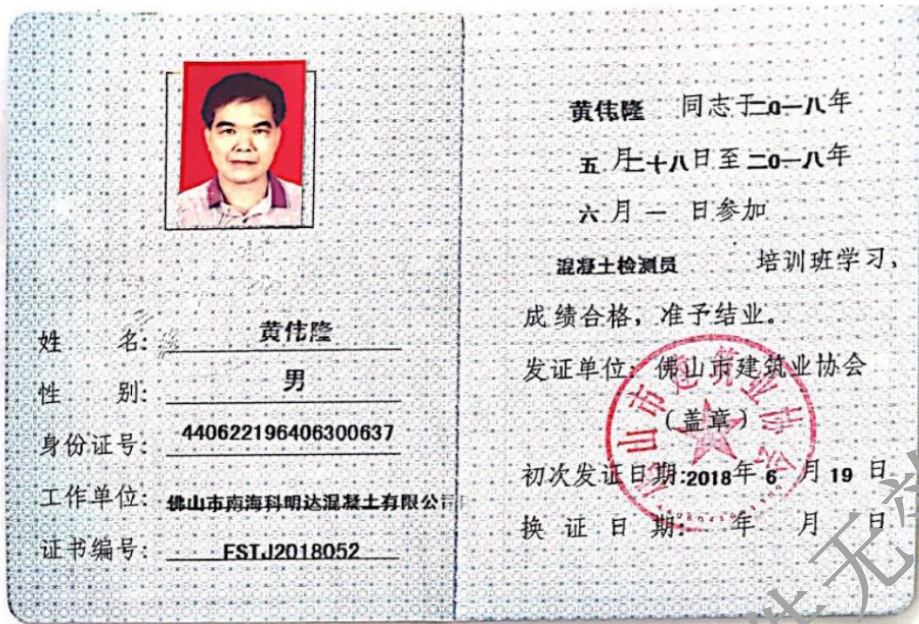 姓 名: 黄伟隆
性 别: 男
身份证号: 440622196406300637
工作单位: 佛山市南海科明达混凝土有限公司
证书编号: FSTJ2018052
黄伟隆 同志于二0一八年
五 月二十八日至 二0一八年
六 月 一 日参加
混凝土检测员 培训班学习,
成绩合格, 准予结业。
发证单位: 佛山市建筑业协会
(盖章)
初次发证日期:2018年 6 月 19 日
换 证 日 期: 年 月 日
佛山市建筑业协会